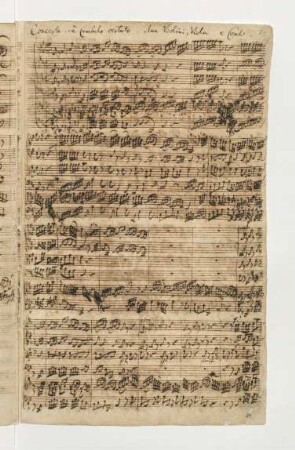 Concerto à Cembalo certato due Violini, Viola e Cont.